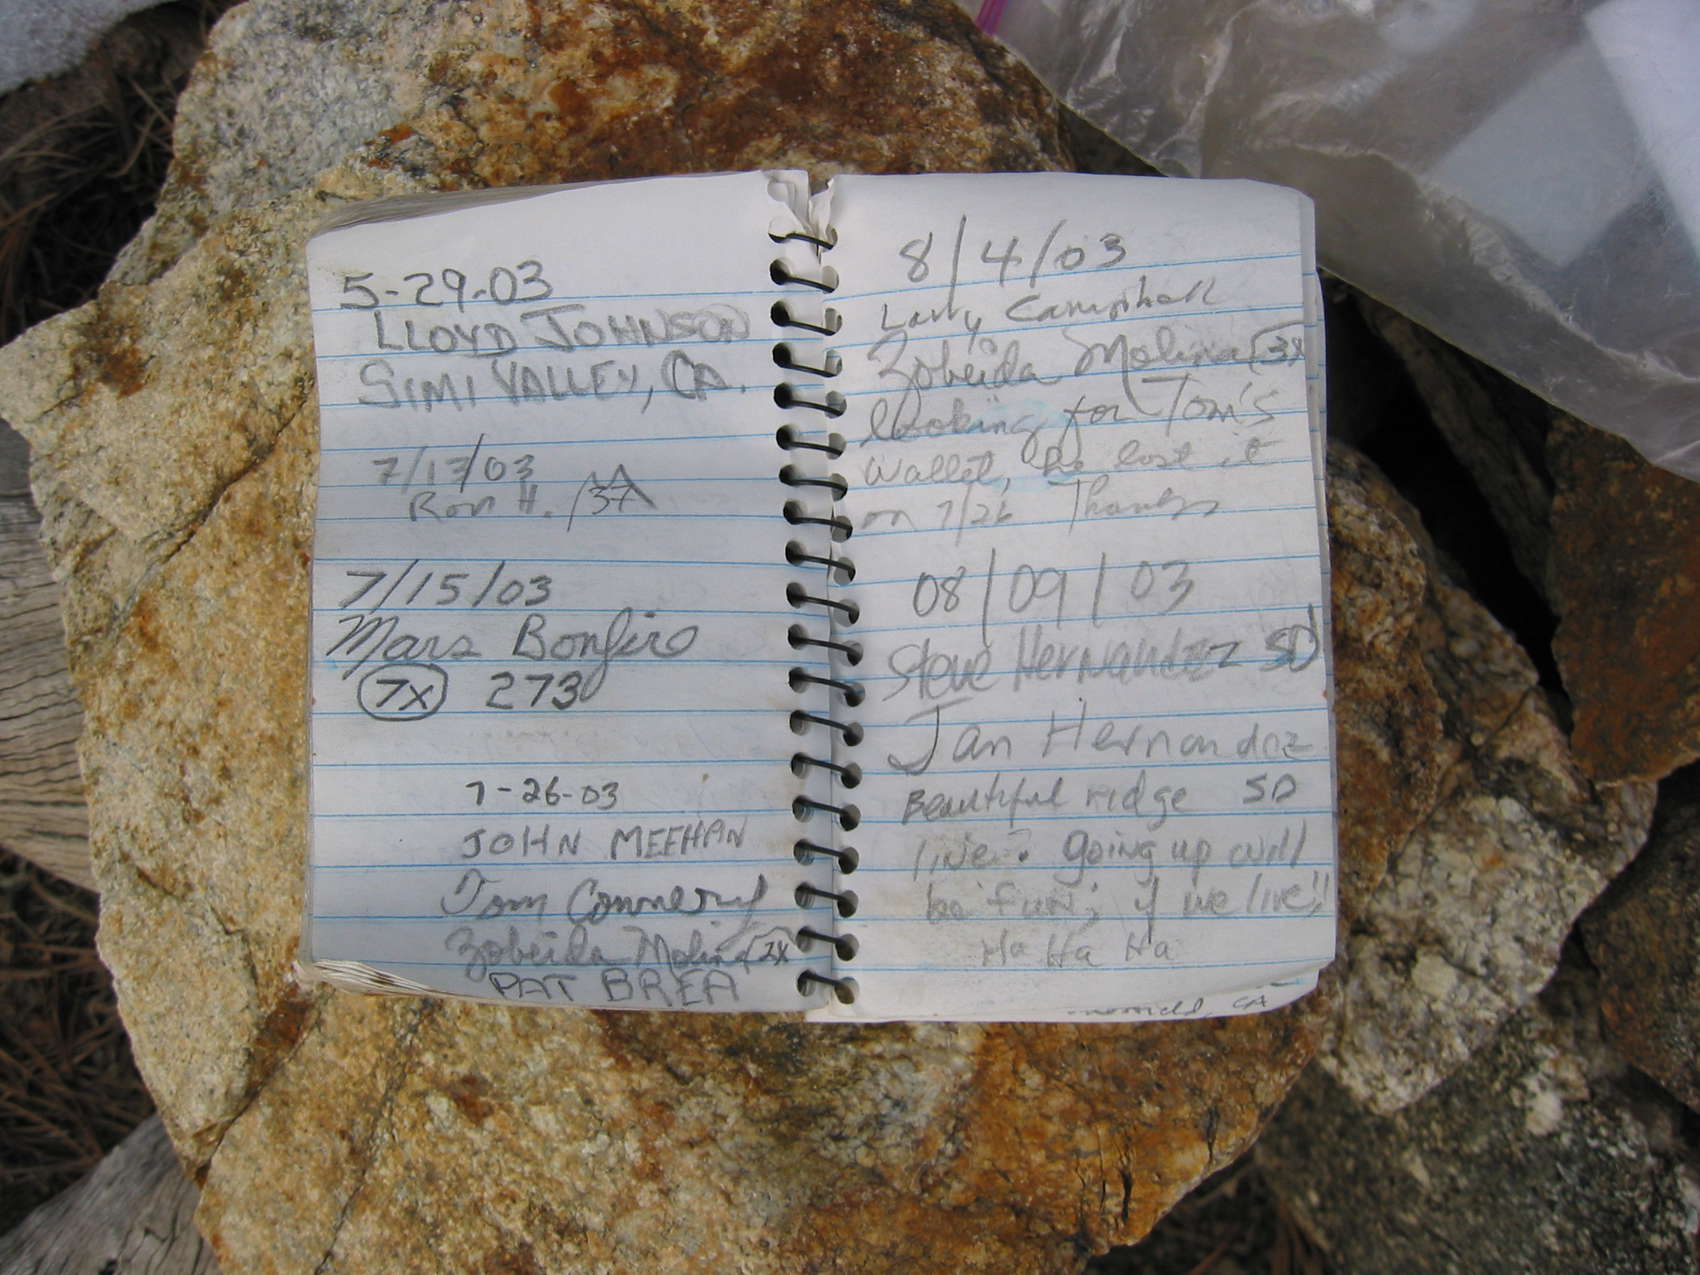 5-29-03
LLOYD JOHNSON
SIMI VALLEY, CA.
7/13/03
Ron H.
7/15/03
Mars Bonfire
7x 273
7-26-03
JOHN MEEHAN
Tom Connery
Zobeida Molina 2x
PAT BREA
8/4/03
Larry Campbell
Zobeida Molina 3x
looking for Tom's
wallet, he lost it
on 7/26 Thanks
08/09/03
Steve Hernandez SD
Jan Hernandez
Beautiful ridge SD
line? going up will
be fun; if we live!!
Ha Ha Ha
CA